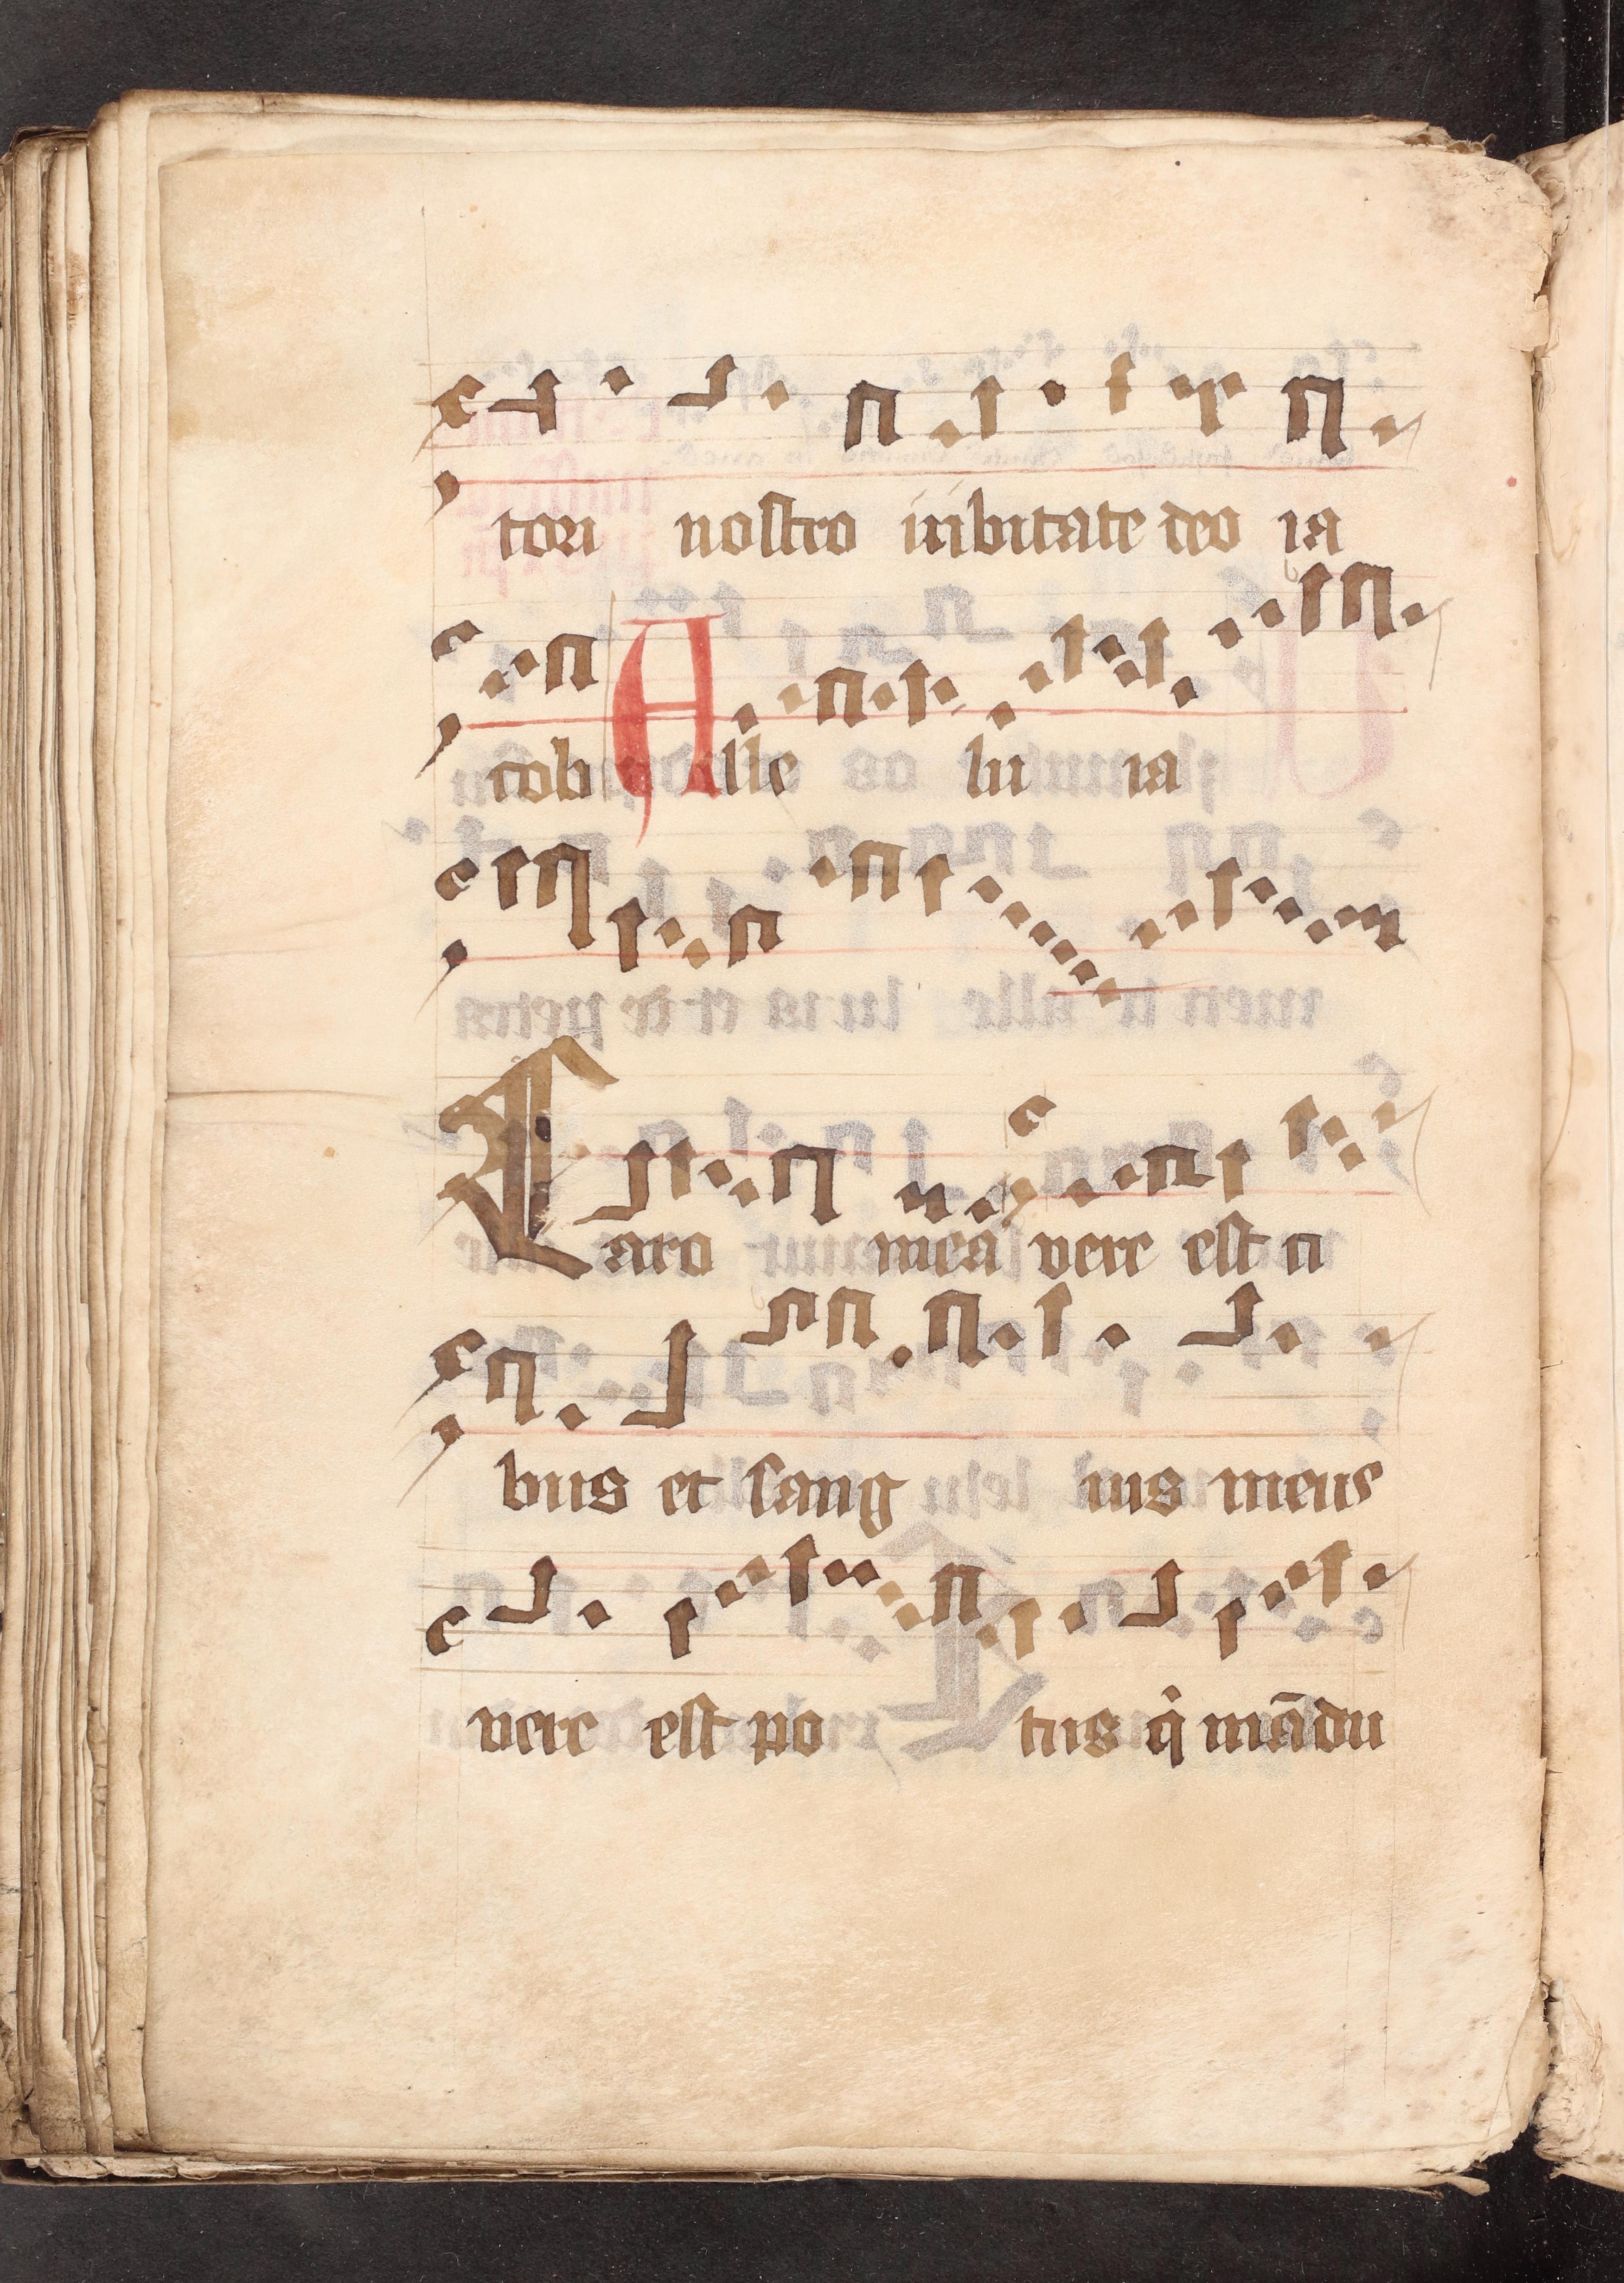 tori nostro iubilate deo ia
cob Alle lu ia
Caro mea vere est ci
bus et sang uis meus
vere est po tus q̇ mādu